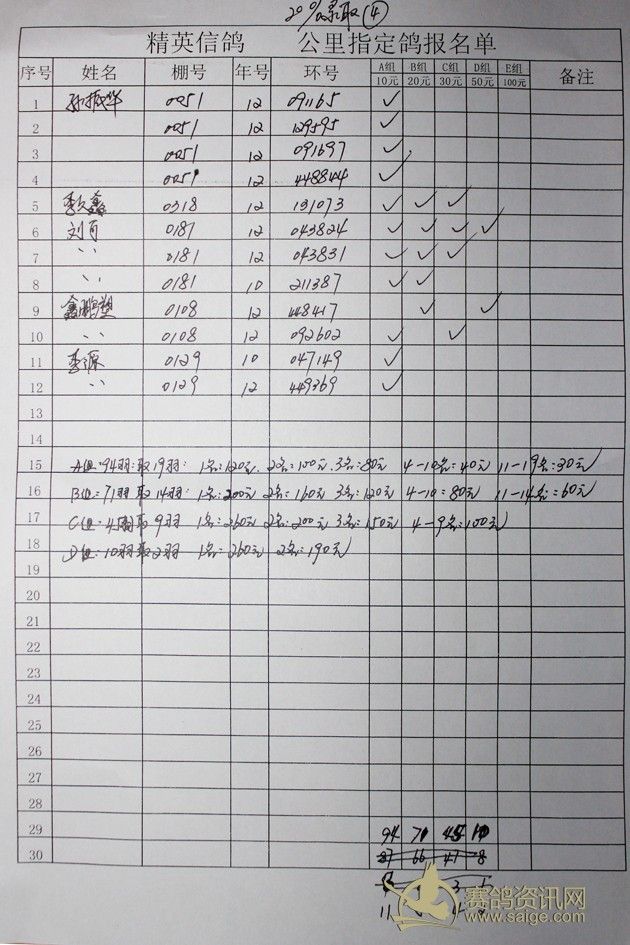 20%录取④
精英信鸽 公里指定鸽报名单
序号 姓名 棚号 年号 环号 A组 B组 C组 D组 E组 备注
10元 20元 30元 50元 100元
1 0051 12 091165 ✓
2 0051 12 129595 ✓
3 0051 12 091697 ✓
4 0051 12 448844 ✓
5 李久鑫 0318 12 131073 ✓ ✓ ✓
6 刘百 0181 12 043824 ✓ ✓ ✓ ✓
7 〃 0181 12 043831 ✓ ✓ ✓
8 〃 0181 10 211387 ✓ ✓
9 鑫鹏塑 0108 12 448417 ✓ ✓
10 〃 0108 12 092602 ✓ ✓
11 李源 0129 10 047149 ✓
12 〃 0129 12 449369 ✓
13
14
15 A组:94羽:取19羽: 1名:120元. 2名:100元. 3名:80元 4-10名:40元 11-19名:30元
16 B组:71羽 取14羽: 1名:200元 2名:160元 3名:120元 4-10:80元 11-14名:60元
17 C组:45羽取9羽 1名:260元 2名:200元 3名:150元 4-9名:100元
18 D组:10羽取2羽 1名:260元 2名:190元
19
20
21
22
23
24
25
26
27
28
29 94 71 45 10
30 87 66 47 8
3
11 4
赛鸽资讯网
www.saige.com